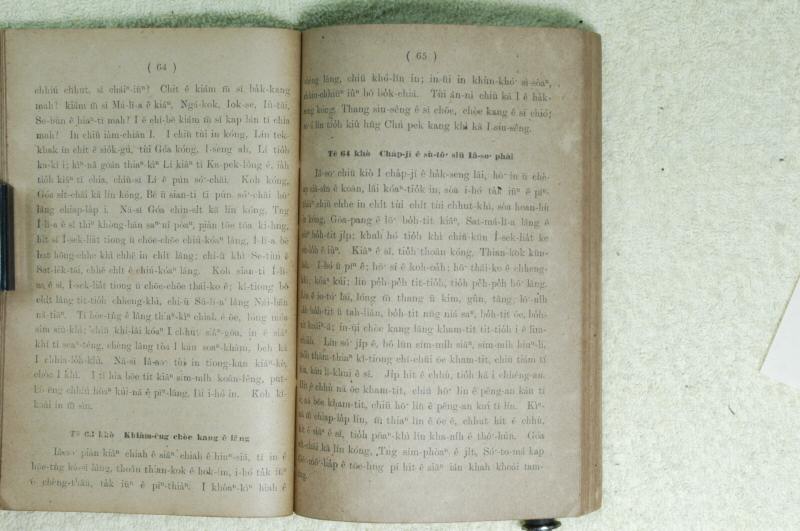 ( 64 )
chhiú chhut, sī cháiⁿ-iūⁿ? Chit ê kiám m̄ sī ba̍k-kang
mah? kiám m̄ sī Má-lī-a ê kiáⁿ, Ngá-kok, Iok-se, Iû-tāi,
Se-bûn ê hiaⁿ-tī mah? I ê chí-bē kiám m̄ sī kap lán tī chia
mah? In chiū iàm-chiān I. I chiū tùi in kóng, Lín tek-
khak ín chit ê sio̍k-gú, tùi Góa kóng, I-seng ah, Lí tio̍h
ka-kī i; kìⁿ-nā goán thiaⁿ-kìⁿ Lí kiâⁿ tī Ka-pek-lông ê, iā
tio̍h kiâⁿ tī chia, chiū-sī Lí ê pún só͘-chāi. Koh kóng,
Góa si̍t-chāi kā lín kóng, Bē ū sian-ti tī pún só͘-chāi hō͘
lâng chiap-la̍p i. Nā-sī Góa chin-si̍t kā lín kóng, Tng
Í-lī-a ê sî thiⁿ khòng-hān saⁿ nî pòaⁿ, piàn tōe tōa ki-hng,
hit sî Í-sek-lia̍t tiong ū chōe-chōe chiú-kóaⁿ lâng, Í-lī-a bē
hō͘ chhe khì chhē in chi̍t lâng; chí-ū khì Se-tùn ê
Sat-le̍k-tāi, chhē chi̍t ê chiú-kóaⁿ lâng. Koh sian-ti Í-lī-
ê sî, Í-sek-lia̍t tiong ū chōe-chōe thái-ko ê; kî-tiong bô
chi̍t lâng tit-tio̍h chheng-khì, chí-ū Sū-lī-a lâng
Tī hōe-tn̂g ê lâng thiaⁿ-kìⁿ chiah ê ōe, lóng móa
sim siū-khì; chiū khí-lâi kóaⁿ I chhut siâⁿ-gōa, in ê siâⁿ
khí tī soaⁿ-téng, chhèng lâng tòa I kàu soaⁿ-khàm, beh kā
I chhia-lo̍h-khì. Nā-sī Iâ-so͘ tùi in tiong-kan kiâⁿ-kè,
chòe I khì. I tī hia bōe tit kiâⁿ sím-mi̍h koân-lêng, put-
kò ēng chhiú hōaⁿ kúi-nā ê pīⁿ-lâng, lâi i-hó in. Koh kî-
koài in m̄ sìn.
Tē 63 khò Khiàm-ēng chòe kang ê lêng
Iâ-so͘ piàn kiâⁿ chiah ê siâⁿ chiah ê hiuⁿ-siā, tī in ê
hōe-tn̂g kà-sī lâng, thoân thian-kok ê hok-im, i-hó ta̍k iūⁿ
ê chèng-thâu, ta̍k iūⁿ ê pīⁿ-thiàⁿ. I khòaⁿ-kìⁿ hiah ê
( 65 )
chèng lâng, chiū khó-lîn in; in-ūi in khùn-khó͘ sì-sòaⁿ,
chhin-chhiūⁿ iûⁿ bô bo̍k-chiá. Tùi án-ni chiū kā I ê ha̍k-
seng kóng, Thang siu-sêng ê sī chōe, chòe kang ê sī chió;
só͘-í lín tio̍h kiû hn̂g Chú pek kang khì kā I siu-sêng.
Tē 64 khò Cha̍p-jī ê sù-tô͘ siū Iâ-so͘ phài
Iâ-so͘ chiū kiò I cha̍p-jī ê ha̍k-seng lâi, hō͘ in ū chè-
siâ-sîn ê koân, lâi kóaⁿ-tio̍k in, sòa i-hó ta̍k iūⁿ ê pīⁿ-
thiàⁿ, chiū chhe in chi̍t tùi chi̍t tùi chhut-khì, sòa hoan-hù
in kóng, Góa-pang ê lō͘ bo̍h-tit kiâⁿ, Sat-má-lī-a lâng ê
siâⁿ bo̍h-tit ji̍p; khah hó tio̍h khì chiū-kūn Í-sek-lia̍t ke
ê iûⁿ. Kiâⁿ ê sî, tio̍h thoân kóng, Thian-kok kūn-
lah. I-hó ū pīⁿ ê; hō͘ sí ê koh-oa̍h; hō͘ thái-ko ê chheng-
khì; kóaⁿ kúi; lín pe̍h-pe̍h tit-tio̍h, tio̍h pe̍h-pe̍h hō͘ lâng.
Lín ê io-tó͘ lāi, lóng m̄ thang ū kim, gûn, tâng; lō͘-ni̍h
bo̍h-tit ū tah-liân, bo̍h-tit nn̄g niá saⁿ, bo̍h-tit ôe, bo̍h-
tit koáiⁿ-á; in-ūi chòe kang lâng kham-tit tit-tio̍h i ê liûn-
chhiah. Lín só͘ ji̍p ê, bô lūn sím-mi̍h siâⁿ, sím-mi̍h hiuⁿ-lí,
tio̍h thàm-thiaⁿ kî-tiong chī-chūi ōe kham-tit, chiū tiàm tī
hia, kàu lī-khui ê sî. Ji̍p hit ê chhù, tio̍h kā i chhéng-an.
Hit ê chhù nā ōe kham-tit, chiū hō͘ lín ê pêng-an kàu tī
i; nā bōe kham-tit, chiū hō͘ lín ê pêng-an kui tī lín. Kìⁿ-
nā m̄ chiap-la̍p lín, m̄ thiaⁿ lín ê ōe ê, chhut hit ê chhù,
hit ê siâⁿ ê sî, tio̍h pōaⁿ-khì lín kha-ni̍h ê thô͘-hún. Góa
si̍t-chāi kā lín kóng, Tng sím-phòaⁿ ê ji̍t, Só͘-to-má kap
Gô-mô͘-lia̍p ê tōe-hng pí hit ê siâⁿ iáu khah khoài tam-
tng.